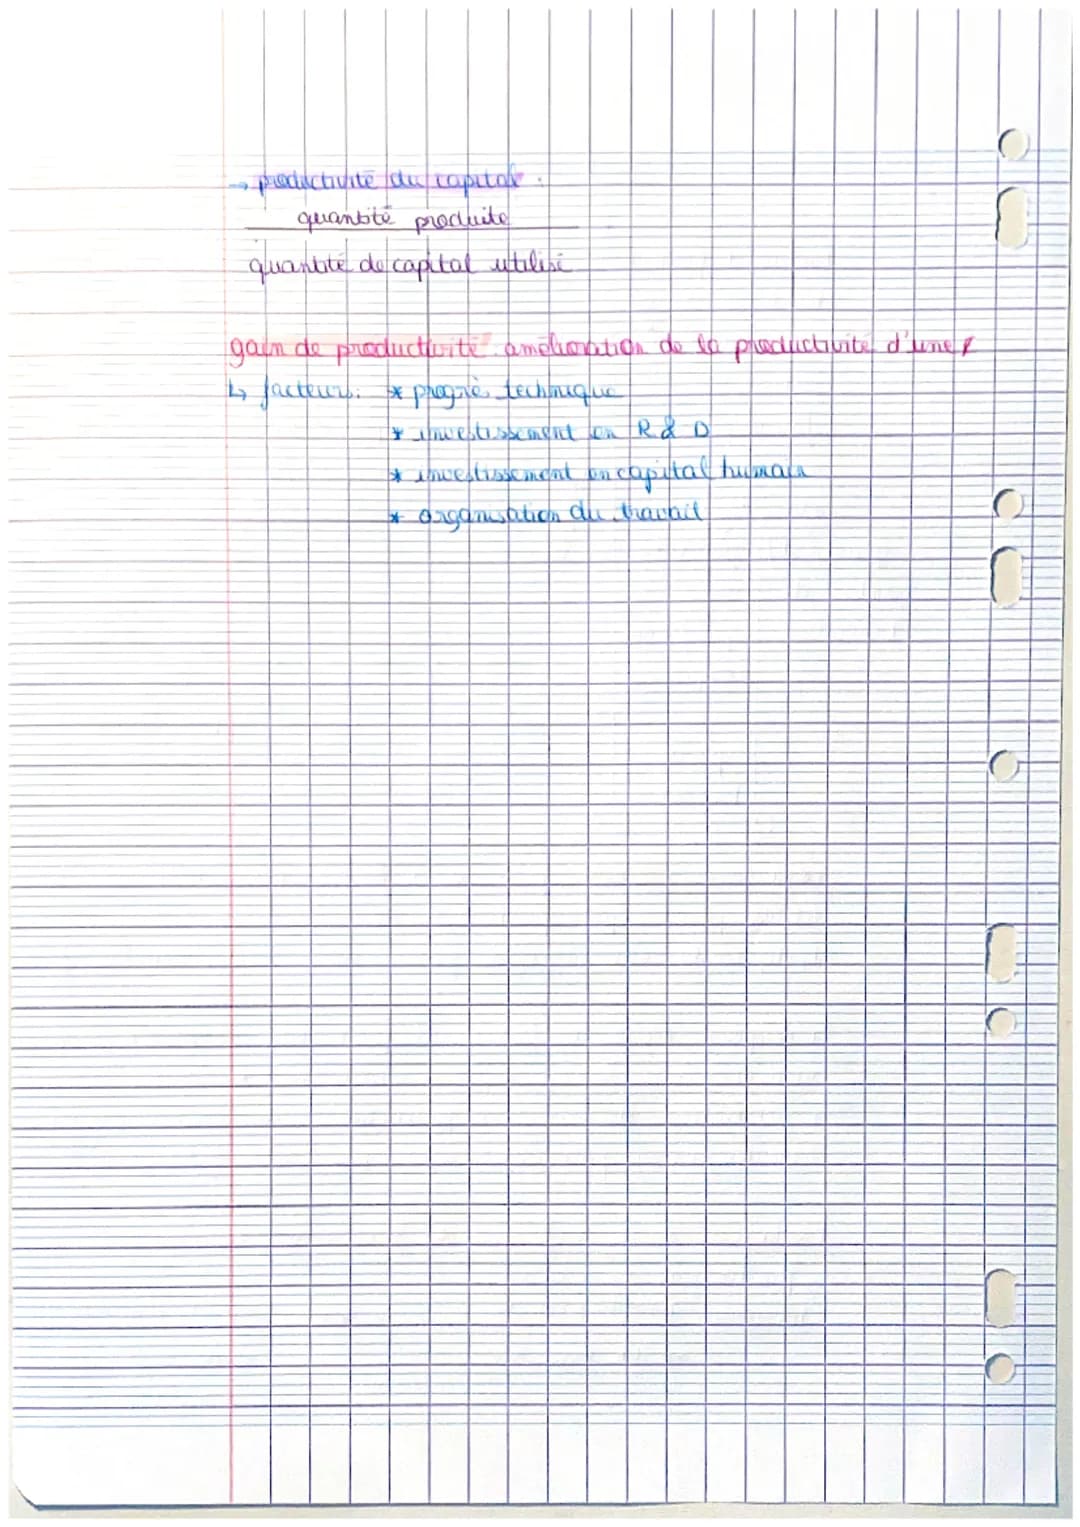 → productivité du capital :
quantité produite
quantité de capital utilisé
gain de productivité : amélioration de la productivité d'une
↳ facteurs : * progrè technique
* investissement en R & D
* investissement en capital humain
* organisation du travail